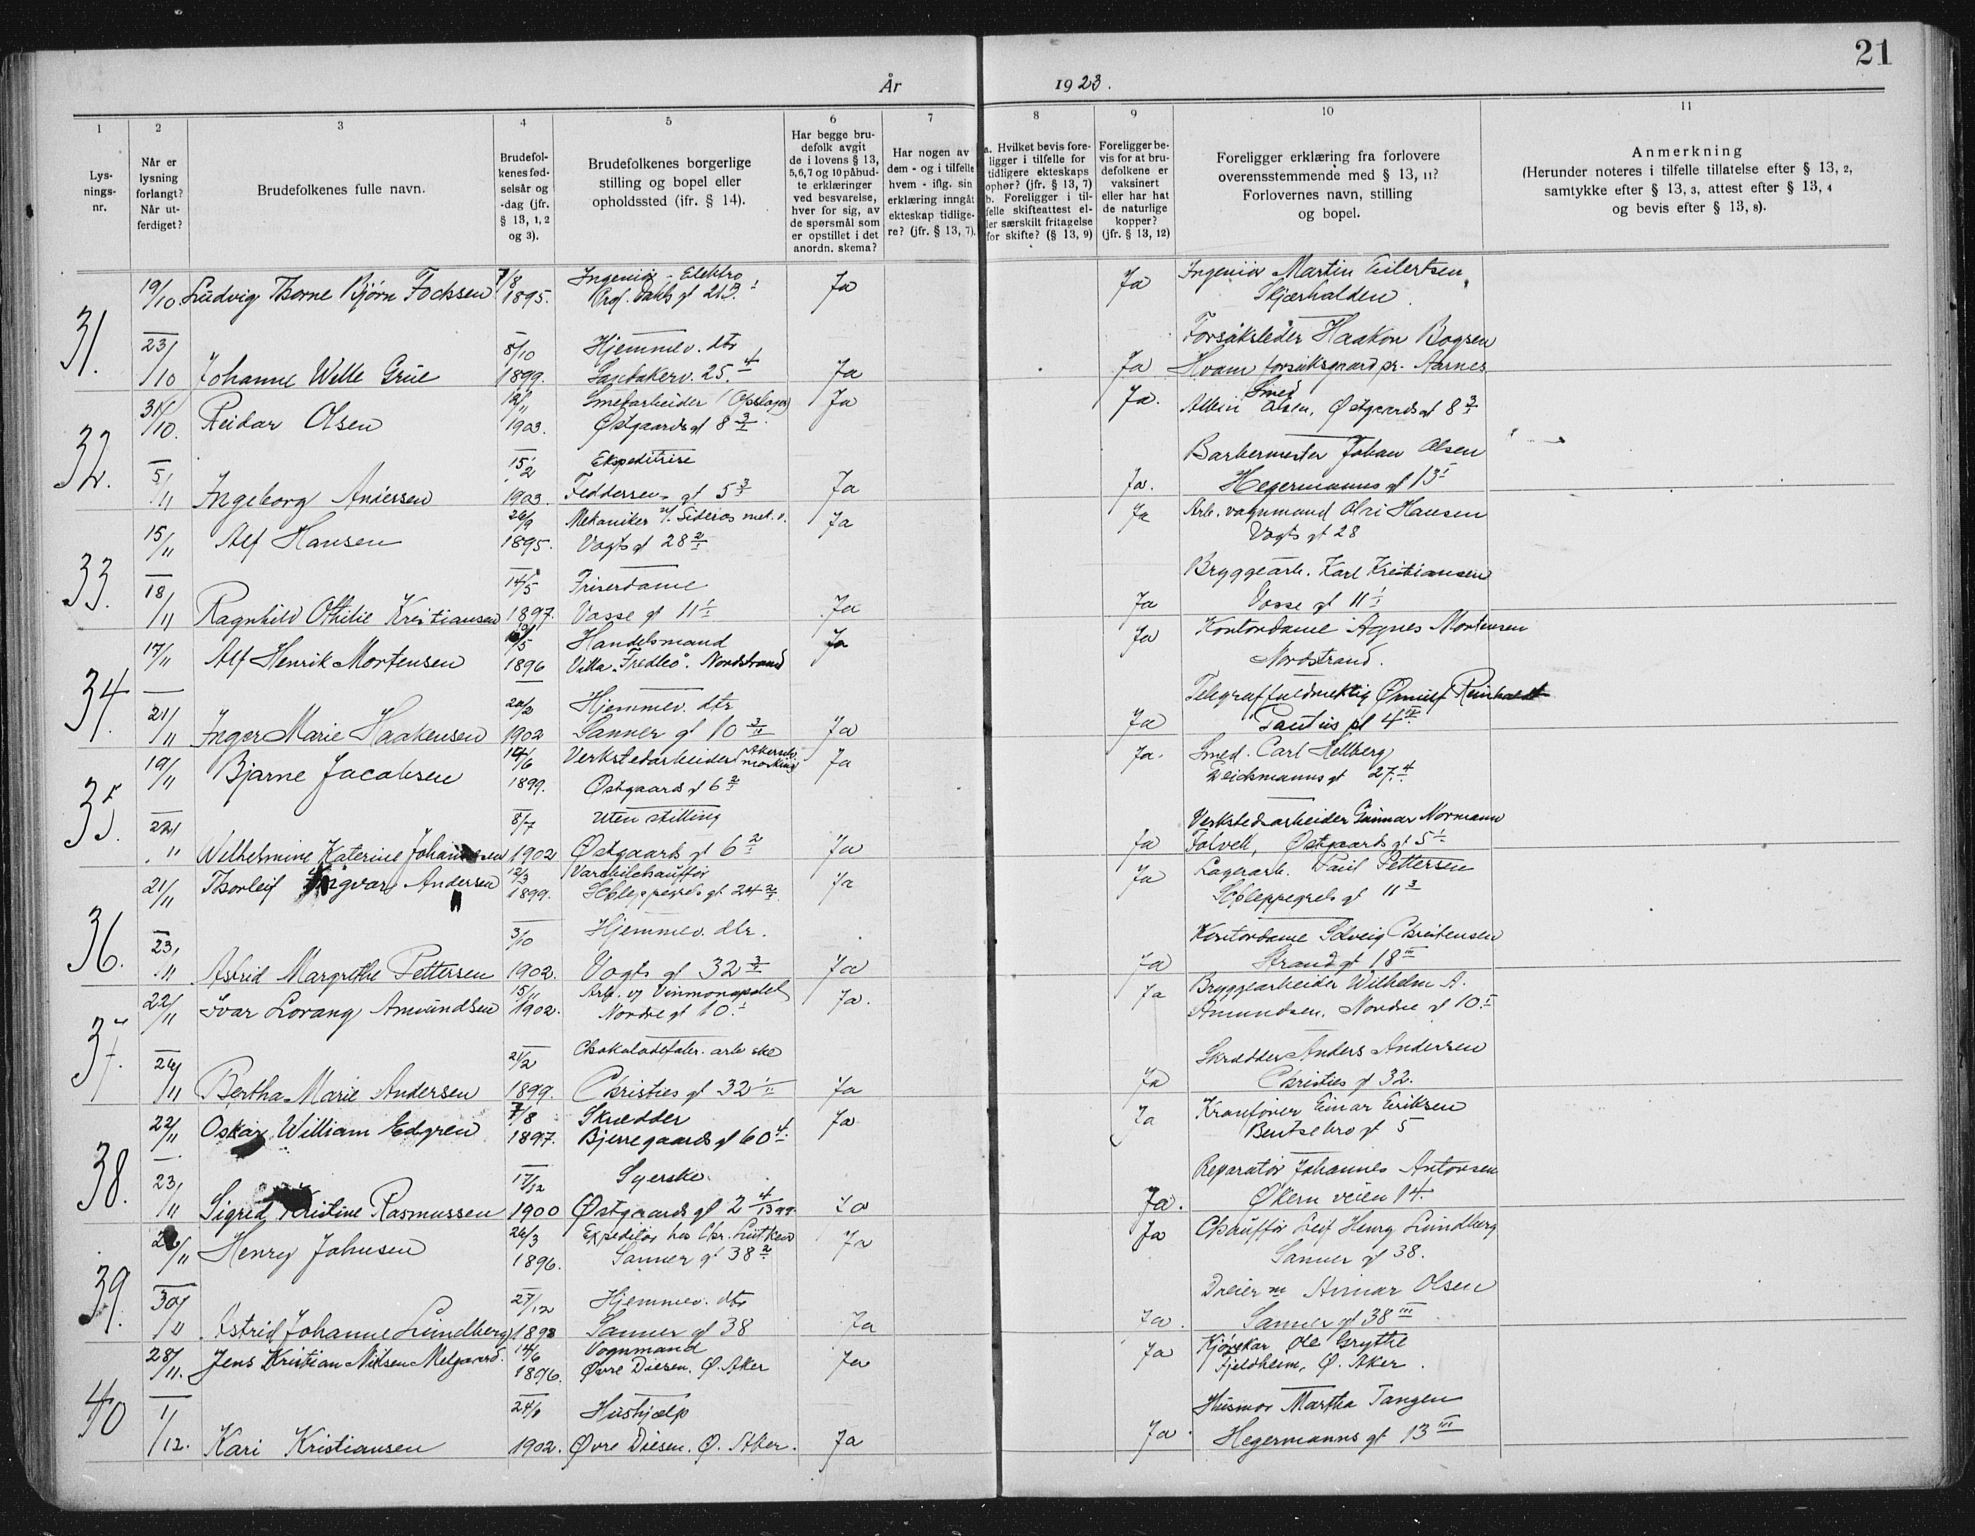 21
År 1923.
1 2 3 4 5 6 7 8 9 10 11
Lys-
nings-
nr.
Når er
lysning
forlangt?
Når ut-
ferdiget?
Brudefolkenes fulle navn.
Brudefol-
kenes fød-
selsår og
-dag (jfr.
§ 13, 1, 2
og 3).
Brudefolkenes borgerlige
stilling og bopel eller
opholdssted (jfr. § 14).
Har begge bru-
defolk avgit
de i lovens § 13,
5,6,7 og 10 påbud-
te erklæringer
ved besvarelse,
hver for sig, av
de spørsmål som
er opstillet i det
anordn. skema?
Har nogen av
dem - og i tilfelle
hvem - iflg. sin
erklæring inngått
ekteskap tidlige-
re? (jfr. § 13, 7).
a. Hvilket bevis fore-
ligger i tilfelle for
tidligere ekteskaps
ophør? (jfr. § 13, 7)
b. Foreligger i til-
felle skifteattest el-
ler særskilt fritagelse
for skifte? (§ 13, 9)
Foreligger be-
vis for at bru-
defolkene er
vaksinert
eller har hat
de naturlige
kopper?
(jfr. § 13, 12)
Foreligger erklæring fra forlovere
overensstemmende med § 13, 11?
Forlovernes navn, stilling
og bopel.
Anmerkning
(Herunder noteres i tilfelle tillatelse efter § 13, 2,
samtykke efter § 13, 3, attest efter § 13, 4
og bevis efter § 13, 8).
31. 19/10 Ludvig Thorne Bjørn Fochsen 7/8 1895. Ingeniør - Elektro Ja Ja Ingeniør Martin Eilertsen,
Prof. Dahls gt 21 Skjærhalden.
23/10 8/10 Hjemmev. dtr Forsøksleder Haakon Bogsen
Johanne Welle Grue 1899. Sandakerv. 25. Ja Ja Hvam forsøksgaard pr. Aarnes
32. 31/10. Reidar Olsen 12/11 1903. Smedarbeider Ja Ja. Smed
Østgaards gt 8 Olsen, Østgaards gt 8
5/11 15/2 Ekspeditrise Barbermester Johan Olsen
Ingeborg Andersen 1903. Feddersens gt 5 Ja Ja. Hegermanns gt 13
33. 15/11 Alf Hansen 26/9 1895. Mekaniker v. Sideros mek. v. Ja Ja Arb. vognmand Hansen
Vogts gt 28 Vogts gt 28
18/11 14/5 Friserdame Bryggearb. Karl Kristiansen
Ragnhild Othilie Kristiansen 1897. Vosse gt 11 Ja Ja Vosse gt 11
34. 17/11 Alf Henrik Mortensen 1896 Handelsmand Ja Ja Kontordame Agnes Mortensen
Villa "Fredlo". Nordstrand Nordstrand.
21/11 20/2 Hjemmev. dtr Telegraffuldmektig Reinhardt
Inger Marie Haakensen 1902 Sanner gt 10 Ja Ja Paulus pl 4
35. 19/11 Bjarne Jacobsen 14/6 1899. Verkstedarbeider Ja Ja. Smed. Carl Hellberg
Østgaards gt 6 Deichmanns gt 27.
22/11 8/7 Uten stilling Verkstedsarbeider Gunnar Normann
Wilhelmine Katerine Johannesen 1902 Østgaards gt 6 Ja Ja Østgaards gt 5
36. 21/11 Thorleif Ingvar Andersen 12/3 1899. Varebilchauffør Ja Ja Lagerarb. Paul Pettersen
Schleppegrels gt 24 Schleppegrels gt 11
23/11 3/10 Hjemmev. dtr. Kontordame Solveig Christensen
Astrid Margrethe Pettersen 1902. Vogts gt 32 Ja Ja Strand gt 18
37. 22/11 Ivar Lorang Amundsen 15/11 1902. Arb. v. Vinmonopolet Ja. Ja Bryggearbeider Wilhelm A.
Nordre gt 10 Amundsen, Nordre gt 10.
26/11 21/2 Chokoladefabr. arb.ske Skrædder Anders Andersen
Bertha Marie Andersen 1899. Christies gt 32 Ja Ja Christies gt 32.
38. 22/11 Oskar William Edgren 7/8 1897. Skrædder Ja Ja Kranfører Einar Eriksen
Bjerregaards gt 60 Bentsebro gt 5
23/11 17/12 Syerske. Reparatør Johannes Antonsen
Sigrid Kristine Rasmussen 1900 Østgaards gt 2 Ja Ja. Økern veien 14.
39. /11 Henry Johnsen 26/3 1896. Expeditør hos Chr. Lütken Ja Ja Chauffør Leif Henry Lundberg
Sanner gt 38 Sanner gt 38.
30/11 27/12 Hjemmev. dtr Dreier Olsen
Astrid Johanne Lundberg 1898 Sanner gt 38 Ja Ja. Sanner gt 38 III
40 28/11. Jens Kristian Nilsen Melgaard. 14/6 1896. Vognmand Ja Ja Ole Grythe
Øvre Diesen. Ø. Aker Fjeldheim, Ø. Aker.
1/12. Hushjælp Husmor Martha Tangen
Kari Kristiansen 1902. Øvre Diesen. Ø. Aker. Ja Ja. Hegermanns gt 13 III